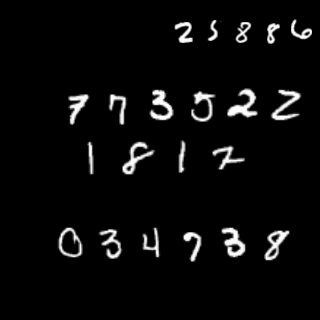 25886
773522
1817
034738